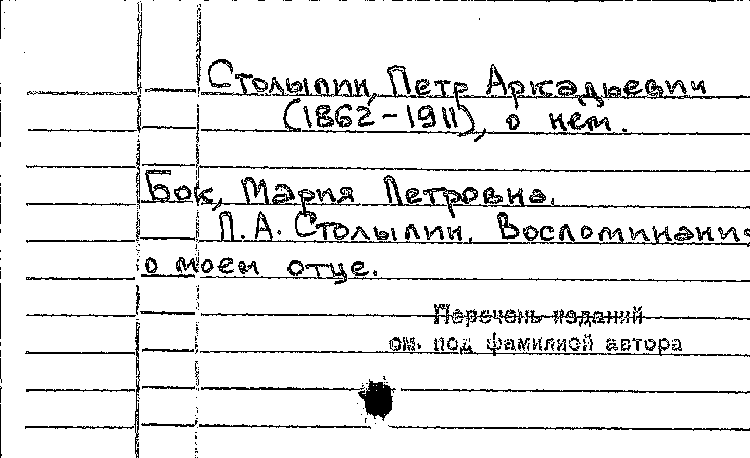 Столыпин, Петр Аркадьевич
(1862-1911), о нем.
Бок, Мария Петровна.
П. А. Столыпин. Воспоминания
о моем отце.
Перечень изданий
см. под фамилией автора